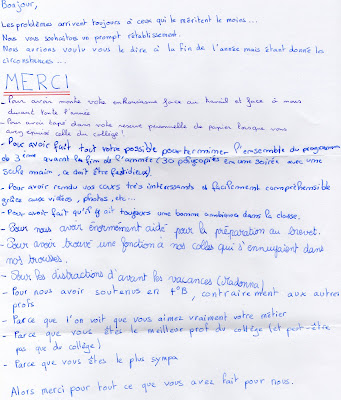 Bonjour,
Les problèmes arrivent toujours à ceux qui le méritent le moins...
Nous vous souhaitons un prompt rétablissement.
Nous aurions voulu vous le dire à la fin de l'année mais étant donné les
circonstances...
MERCI
- Pour avoir montré votre enthousiasme face au travail et face à nous
durant toute l'année
- Pour avoir tapé dans votre réserve personnelle de papier lorsque vous
aviez épuisé celle du collège!
- Pour avoir fait tout votre possible pour terminer l'ensemble du programme
de 3ème avant la fin de l'année (30 paragraphes en une soirée avec une
seule main, ça doit être fastidieux).
- Pour avoir rendu vos cours très intéressants et facilement compréhensible
grâce aux vidéos, photos, etc...
- Pour avoir fait qu'il y ait toujours une bonne ambiance dans la classe.
- Pour nous avoir énormément aidé pour la préparation au brevet.
- Pour avoir trouvé une fonction à nos colles qui s'ennuyaient dans
nos trousses.
- Pour les distractions d'avant les vacances (Madonna)
- Pour nous avoir soutenus en 4°B, contrairement aux autres
profs
- Parce que l'on voit que vous aimez vraiment votre métier
- Parce que vous êtes le meilleur prof du collège (et peut-être
pas que du collège)
- Parce que vous êtes le plus sympa
Alors merci pour tout ce que vous avez fait pour nous.